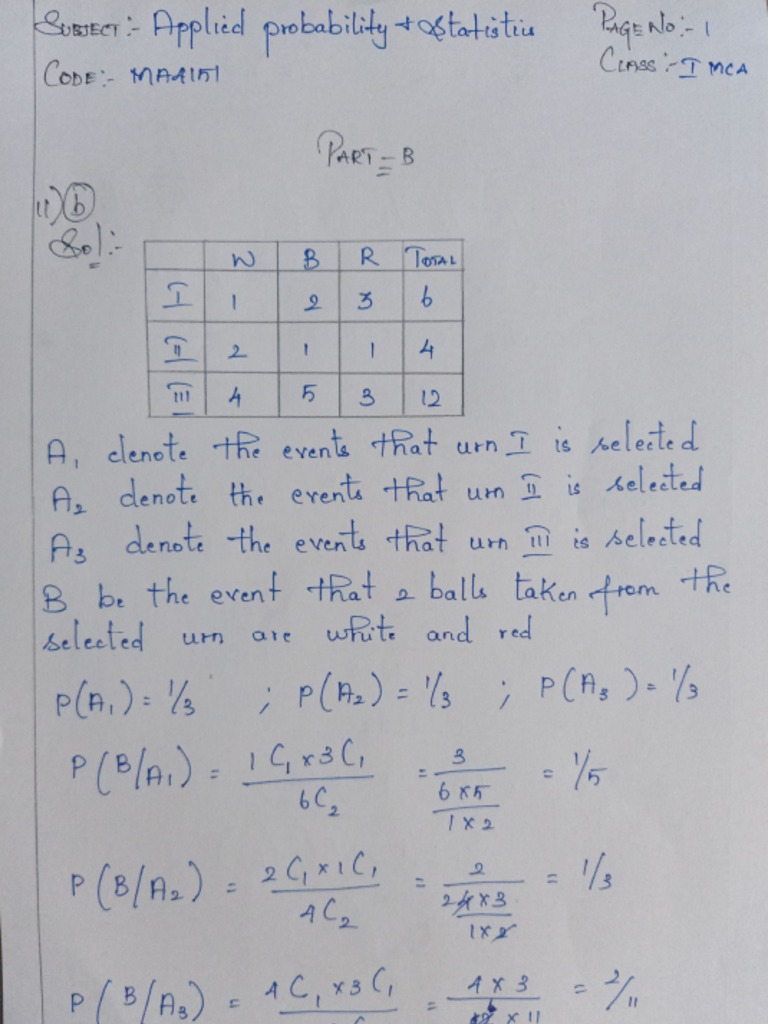 SUBJECT:- Applied probability & Statistics PAGE NO:- 1
CODE:- MA4151 CLASS:- I MCA
PART-B
11) b
Sol:-
W B R TOTAL
I 1 2 3 6
II 2 1 1 4
III 4 5 3 12
A₁ denote the events that urn I is selected
A₂ denote the events that urn II is selected
A₃ denote the events that urn III is selected
B be the event that 2 balls taken from the
selected urn are white and red
P(A₁) = 1/3 ; P(A₂) = 1/3 ; P(A₃) = 1/3
P(B/A₁) = 1C₁ x 3C₁ / 6C₂ = 3 / (6 x 5 / 1 x 2) = 1/5
P(B/A₂) = 2C₁ x 1C₁ / 4C₂ = 2 / (2 4 x 3 / 1 x 2) = 1/3
P(B/A₃) = 4C₁ x 3C₁ = 4 x 3 / 6 12 x 11 = 2/11